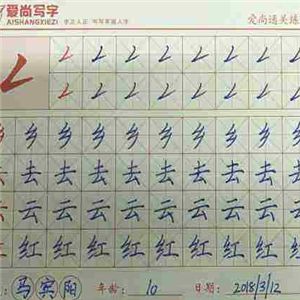 爱尚写字 爱尚通关练
AISHANGXIEZI
乡 乡 乡 乡 乡 乡 乡 乡 乡 乡
去 去 去 去 去 去 去 去 去 去
云 云 云 云 云 云 云 云 云 云
红 红 红 红 红 红 红 红 红 红
马宾阳 年龄: 10 日期: 2018/3/12